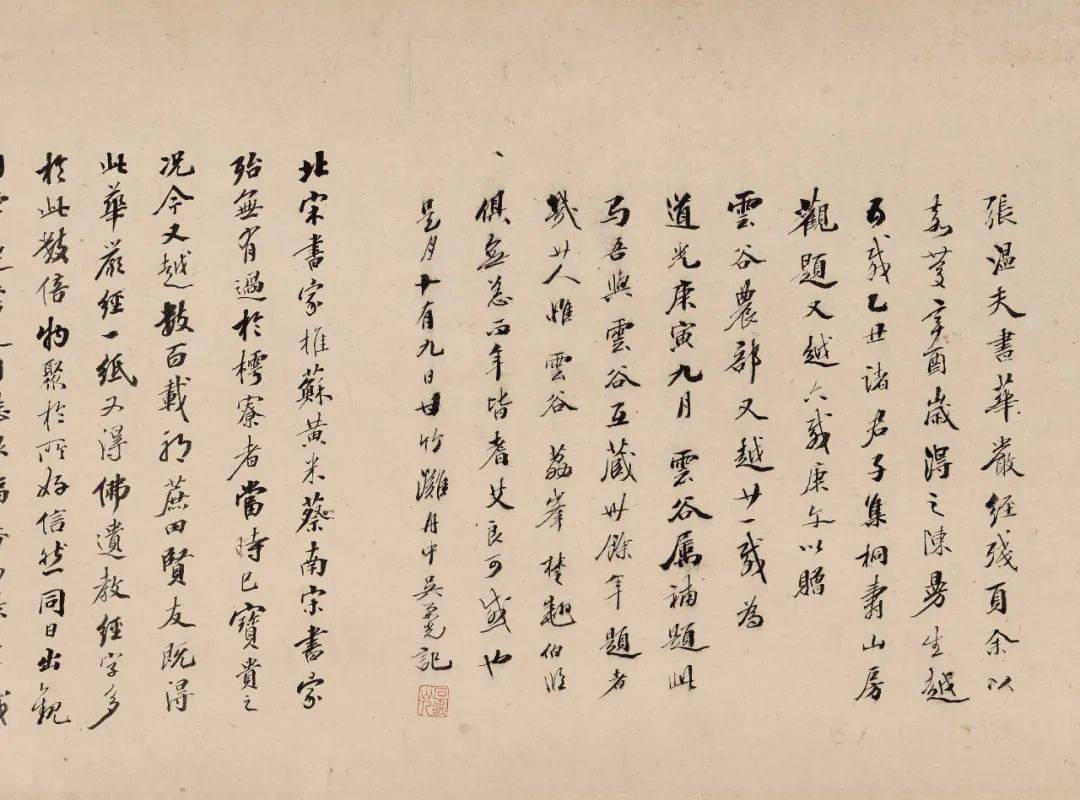 張溫夫書華嚴經殘頁余以
嘉慶辛酉歲得之陳曼生越
五歲乙丑諸君子集桐壽山房
觀題又越六歲庚午以贈
雲谷農部又越廿一歲為
道光庚寅九月雲谷屬補題此
与吾與雲谷互藏卅餘年題者
幾廿人惟雲谷荔峯楚翹伯臨
俱無恙而年皆耆艾良可感也
是月十有九日甘竹灘舟中吳榮光記
北宋書家推蘇黃米蔡南宋書家
殆無有過於樗寮者當時已寶貴之
況今又越數百載耶蔗田賢友既得
此華嚴經一紙又得佛遺教經字多
於此數倍物聚於所好信然同日出觀